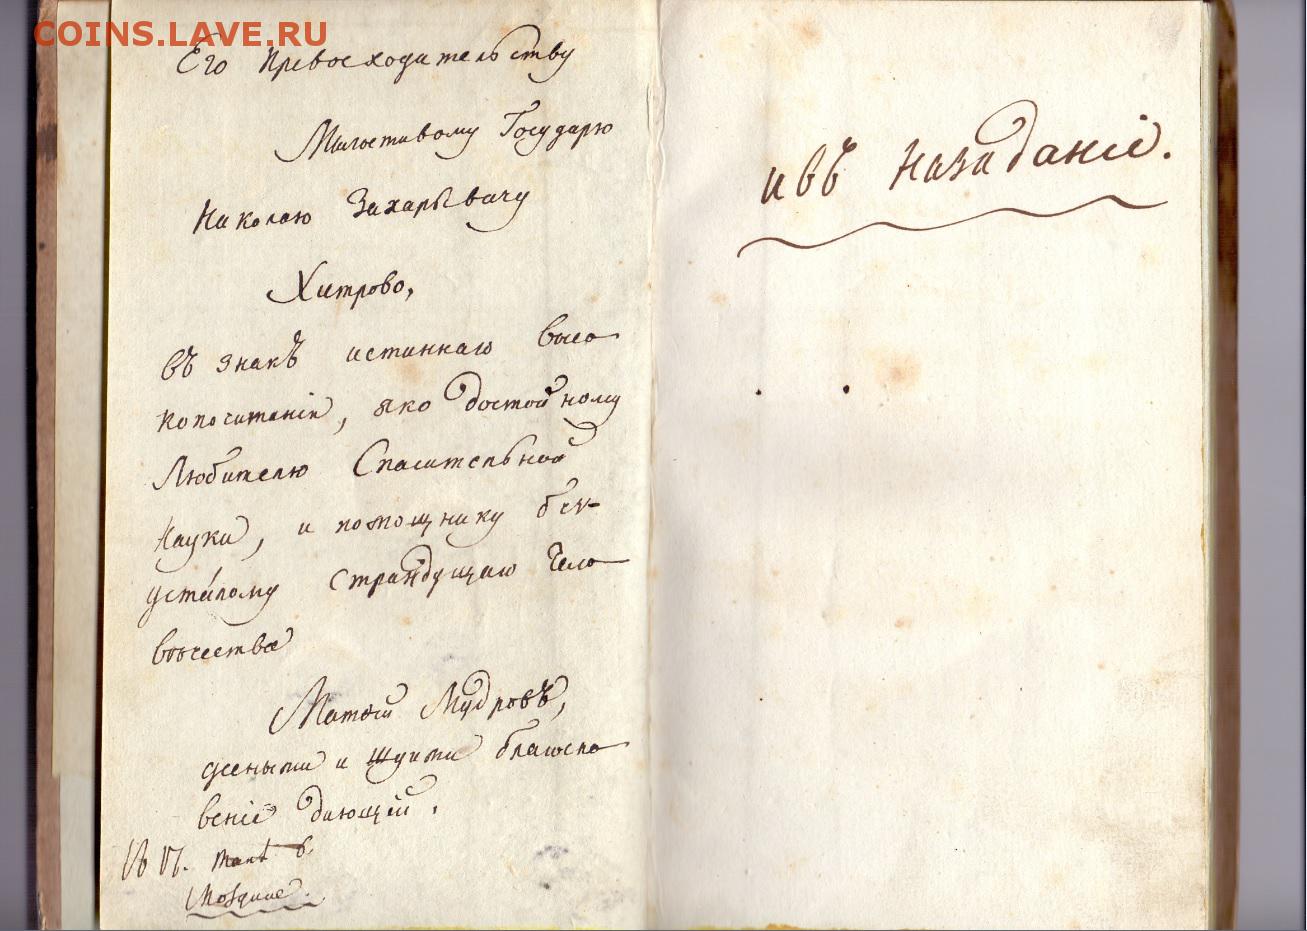 COINS.LAVE.RU
Его Превосходительству
Милостивому Государю
Николаю Захарьевичу
Хитрово,
въ знакъ истиннаго высо-
копочитанія, яко достойному
Любителю Спасительной
Науки, и помощнику без-
усталому Страждущаго Чело-
вѣчества
Матѳей Мудровъ,
десными и шуими благосло-
веніе дающій.
Mosquae.
ивъ назиданіе.